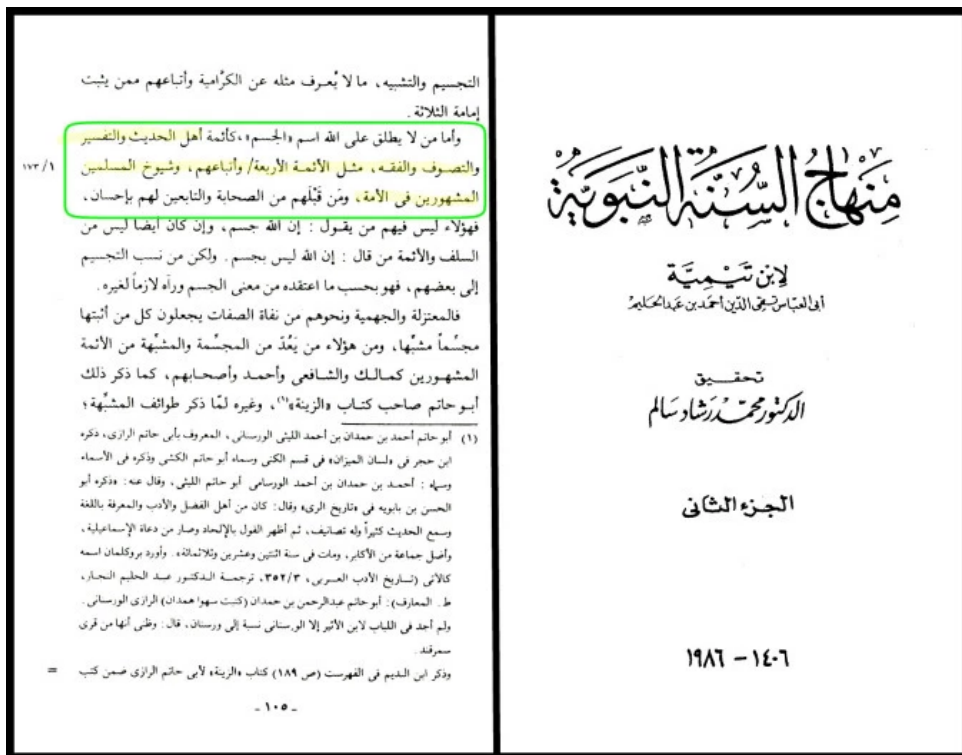 منهاج السنة النبوية
لابن تيمية
أبي العباس تقي الدين أحمد بن عبد الحليم
تحقيق
الدكتور محمد رشاد سالم
الجزء الثانى
١٤٠٦ - ١٩٨٦
التجسيم والتشبيه، ما لا يُعرف مثله عن الكرّامية وأتباعهم ممن يثبت
إمامة الثلاثة.
وأما من لا يطلق على الله اسم «الجسم»، كأئمة أهل الحديث والتفسير
والتصوف والفقه، مثل الأئمة الأربعة/ وأتباعهم، وشيوخ المسلمين
١/ ١٧٣
المشهورين فى الأمة، ومَن قَبْلَهم من الصحابة والتابعين لهم بإحسان،
فهؤلاء ليس فيهم من يقول: إن الله جسم، وإن كان أيضا ليس من
السلف والأئمة من قال: إن الله ليس بجسم. ولكن من نسب التجسيم
إلى بعضهم، فهو بحسب ما اعتقده من معنى الجسم ورآه لازماً لغيره.
فالمعتزلة والجهمية ونحوهم من نفاة الصفات يجعلون كل من أثبتها
مجسِّماً مشبِّها، ومن هؤلاء من يَعُدّ من المجسِّمة والمشبِّهة من الأئمة
المشهورين كمالك والشافعى وأحمد وأصحابهم، كما ذكر ذلك
أبو حاتم صاحب كتاب «الزينة»(١)، وغيره لمّا ذكر طوائف المشبِّهة؛
(١) أبو حاتم أحمد بن حمدان بن أحمد الليثى الورسنانى، المعروف بأبى حاتم الرازى، ذكره
ابن حجر فى «لسان الميزان» فى قسم الكنى وسماه أبو حاتم الكشى وذكره فى الأسماء
وسماه: أحمد بن حمدان بن أحمد الورسامى أبو حاتم الليثى، وقال عنه: «ذكره أبو
الحسن بن بابويه فى «تاريخ الرى» وقال: كان من أهل الفضل والأدب والمعرفة باللغة
وسمع الحديث كثيراً وله تصانيف، ثم أظهر القول بالإلحاد وصار من دعاة الإسماعيلية،
وأضل جماعة من الأكابر، ومات فى سنة اثنتين وعشرين وثلاثمائة». وأورد بروكلمان اسمه
كالآتى (تاريخ الأدب العربى، ٣٥٢/٣، ترجمة الدكتور عبد الحليم النجار،
ط. المعارف): أبو حاتم عبدالرحمن بن حمدان (كتبت سهوا همدان) الرازى الورسنانى.
ولم أجد فى اللباب لابن الأثير إلا الورسنانى نسبة إلى ورسنان، قال: وظنى أنها من قرى
سمرقند.
وذكر ابن النديم فى الفهرست (ص ١٨٩) كتاب «الزينة» لأبى حاتم الرازى ضمن كتب =
- ١٠٥ -